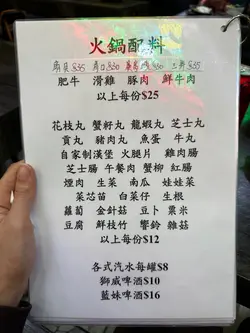 火鍋配料
肥牛 滑雞 豚肉 鮮牛肉
以上每份$25
花枝丸 蟹籽丸 龍蝦丸 芝士丸
貢丸 豬肉丸 魚蛋 牛丸
自家制漢堡 火腿片 雞肉腸
芝士腸 午餐肉 蟹柳 紅腸
煙肉 生菜 南瓜 娃娃菜
菜芯苗 白菜仔 生根
蘿蔔 金針菇 豆卜 粟米
豆腐 鮮枝竹 響鈴 雜菇
以上每份$12
各式汽水每罐$8
獅威啤酒$10
藍妹啤酒$16